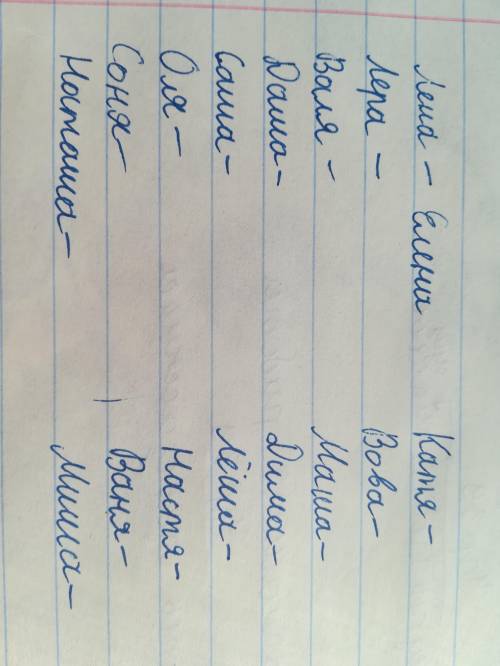 Лена – Елена Катя –
Лера – Вова –
Валя – Маша –
Даша – Дима –
Саша – Лёша –
Оля – Настя –
Соня – Ваня –
Наташа – Миша –